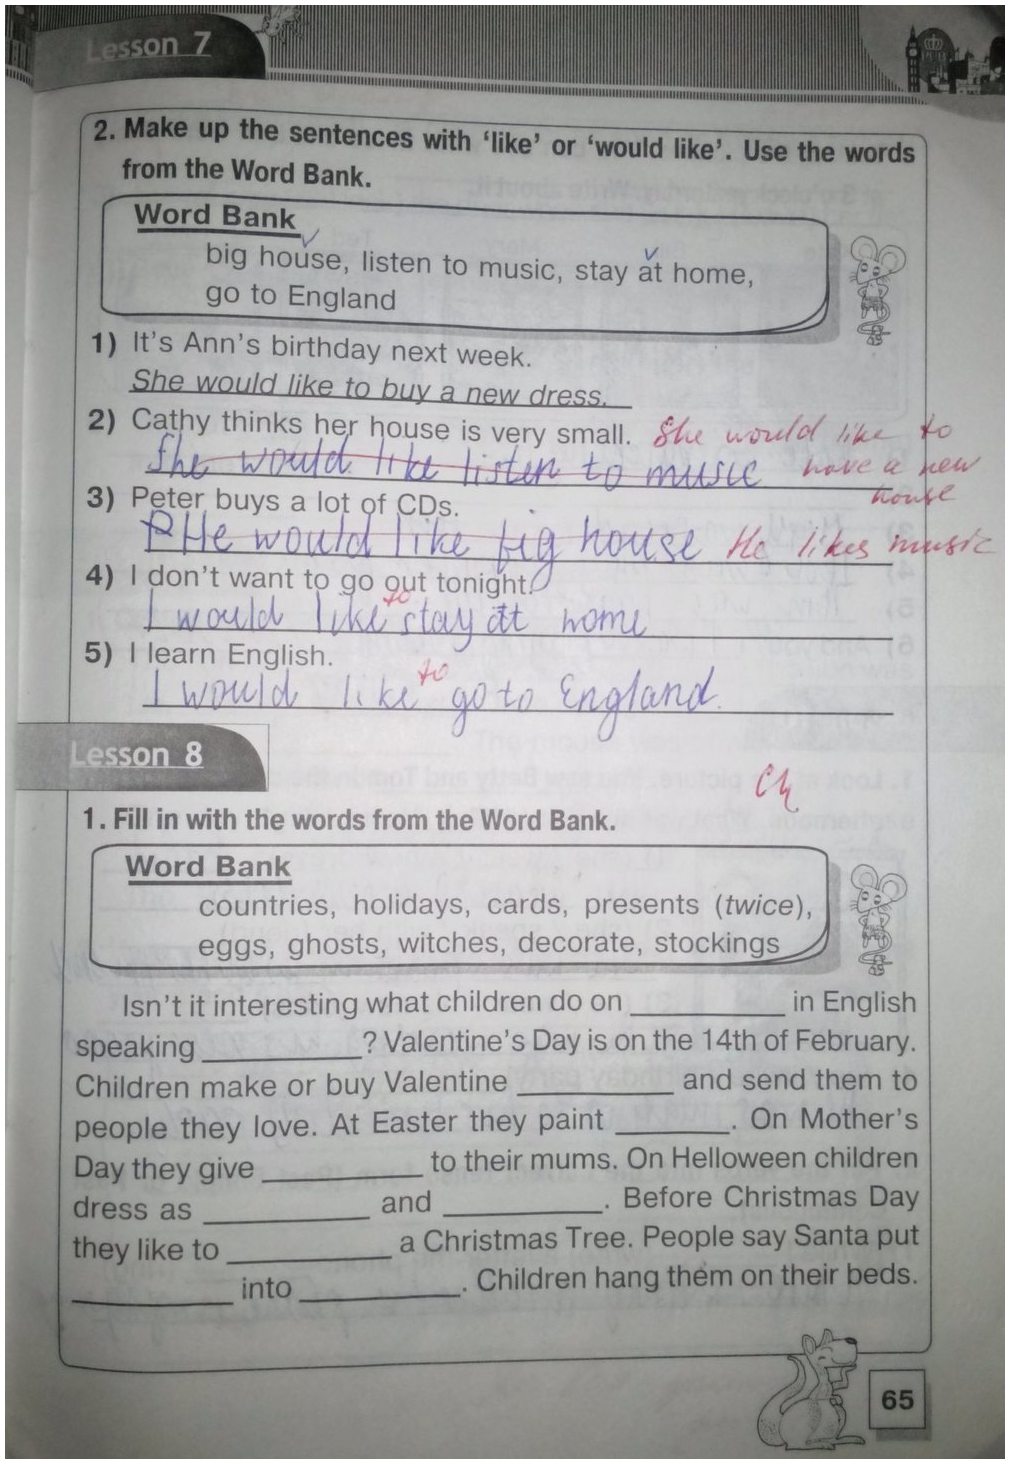 Lesson 7
2. Make up the sentences with ‘like’ or ‘would like’. Use the words
from the Word Bank.
Word Bank
big house, listen to music, stay at home,
go to England
1) It’s Ann’s birthday next week.
She would like to buy a new dress.
2) Cathy thinks her house is very small. She would like to
She would like listen to music have a new
house
3) Peter buys a lot of CDs.
He would like big house He likes music
4) I don’t want to go out tonight.
to
I would like stay at home
5) I learn English.
to
I would like go to England.
Lesson 8
1. Fill in with the words from the Word Bank.
Word Bank
countries, holidays, cards, presents (twice),
eggs, ghosts, witches, decorate, stockings
Isn’t it interesting what children do on ____________ in English
speaking ____________? Valentine’s Day is on the 14th of February.
Children make or buy Valentine ____________ and send them to
people they love. At Easter they paint _________. On Mother’s
Day they give ____________ to their mums. On Helloween children
dress as ____________ and ____________. Before Christmas Day
they like to ____________ a Christmas Tree. People say Santa put
____________ into ____________. Children hang them on their beds.
65